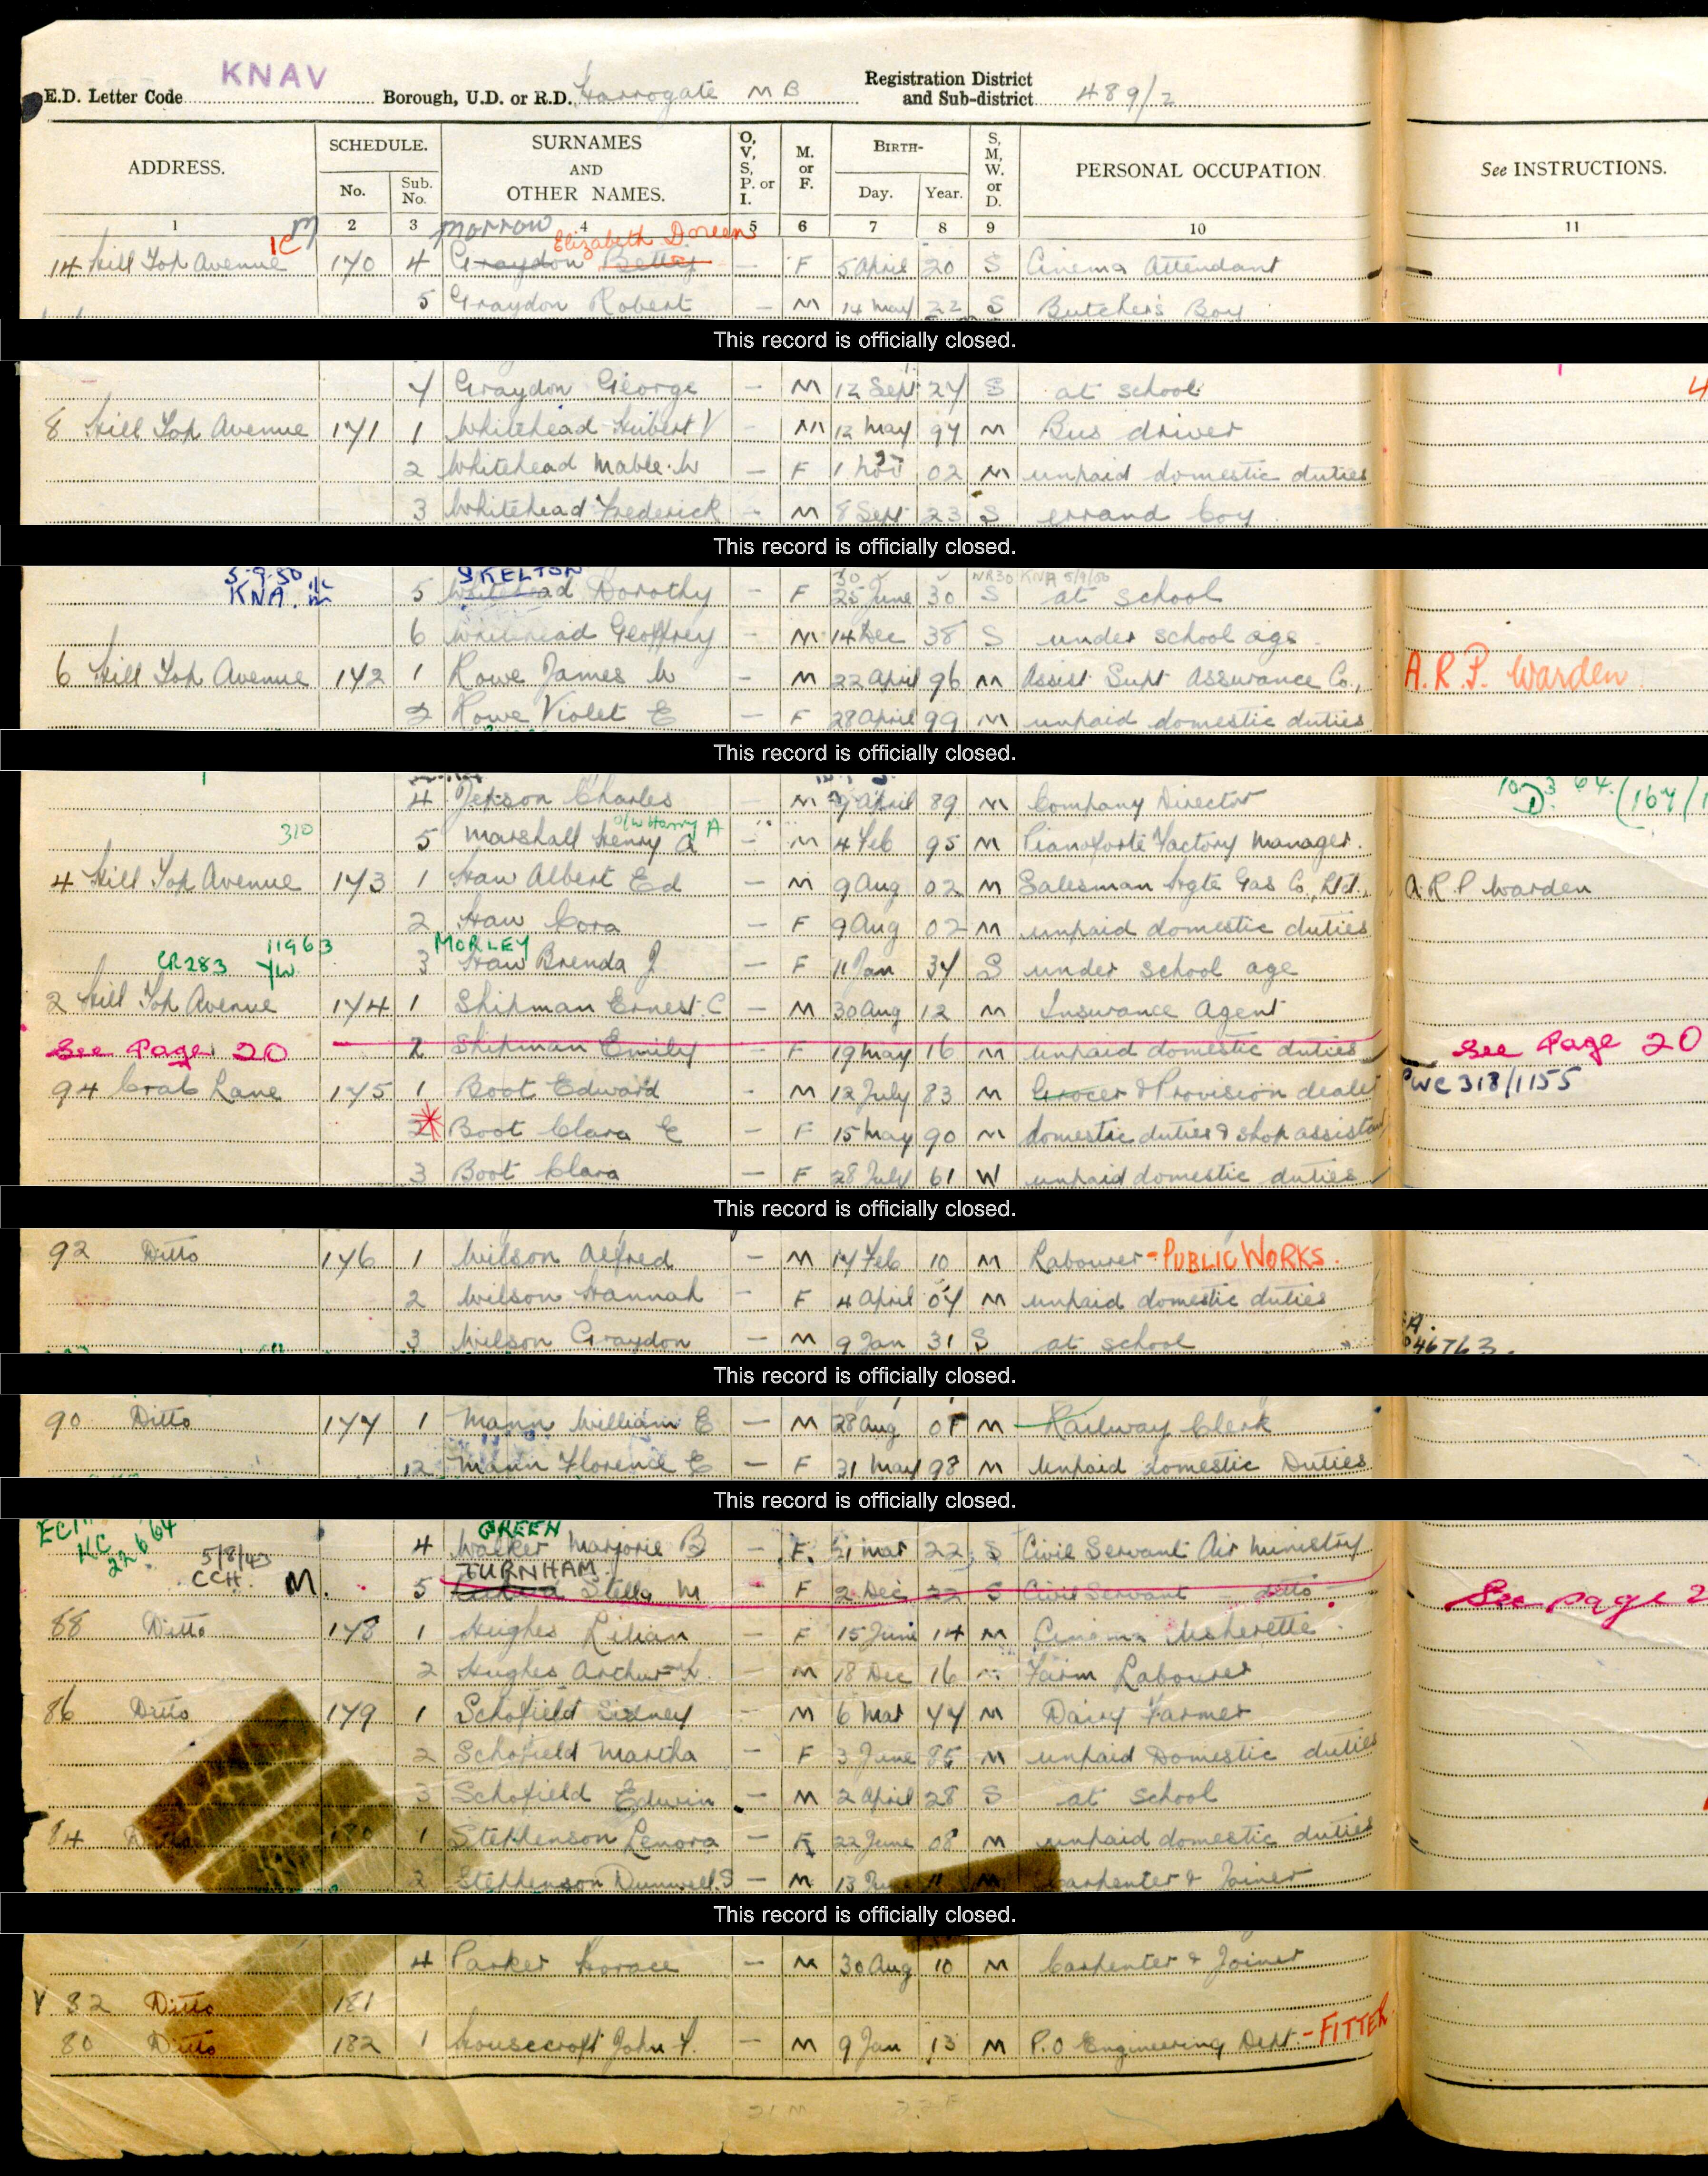 KNAV
E.D. Letter Code Borough, U.D. or R.D. Harrogate M B Registration District and Sub-district 489/2
ADDRESS. SCHEDULE. No. Sub. No. SURNAMES AND OTHER NAMES. O, V, S, P. or I. M. or F. BIRTH- Day. Year. S, M, W. or D. PERSONAL OCCUPATION See INSTRUCTIONS.
1 2 3 4 5 6 7 8 9 10 11
M Morrow Elizabeth Doreen
14 Hill Top Avenue 170 4 Graydon Betty — F 5 April 20 S Cinema Attendant
5 Graydon Robert — M 14 May 22 S Butcher's Boy
This record is officially closed.
7 Graydon George — M 12 Sept 27 S at school
8 Hill Top Avenue 171 1 Whitehead Hubert V — M 12 May 97 M Bus driver
2 Whitehead Mable W — F 1 Nov 02 M unpaid domestic duties
3 Whitehead Frederick — M 8 Sept 23 S errand boy
This record is officially closed.
5-9-50 SKELTON 30 NR30 KNA 5/9/50
KNA. 5 Whitehead Dorothy — F 25 June 30 S at school
6 Whitehead Geoffrey — M 14 Dec 38 S under school age
6 Hill Top Avenue 172 1 Rowe James W — M 22 April 96 M Assist Supt Assurance Co., A.R.P. Warden
2 Rowe Violet E — F 28 April 99 M unpaid domestic duties
This record is officially closed.
4 Jepson Charles — M 9 April 89 M Company Director
310 o/w Harry A
5 Marshall Henry A — M 4 Feb 95 M Pianoforte Factory Manager.
4 Hill Top Avenue 173 1 Haw Albert Ed — M 9 Aug 02 M Salesman Hrgte Gas Co, Ltd., A.R.P Warden
2 Haw Cora — F 9 Aug 02 M unpaid domestic duties
CR283 11963 YW MORLEY
3 Haw Brenda J — F 11 Jan 34 S under school age
2 Hill Top Avenue 174 1 Shipman Ernest C — M 30 Aug 12 M Insurance Agent
See Page 20 2 Shipman Emily — F 19 May 16 M unpaid domestic duties See Page 20
94 Crab Lane 175 1 Boot Edward — M 12 July 83 M Grocer & Provision dealer PWC 318/1155
2 Boot Clara E — F 15 May 90 M domestic duties & shop assistant
3 Boot Clara — F 28 July 61 W unpaid domestic duties
This record is officially closed.
92 Ditto 176 1 Wilson Alfred — M 17 Feb 10 M Labourer - PUBLIC WORKS.
2 Wilson Hannah — F 4 April 07 M unpaid domestic duties
3 Wilson Graydon — M 9 Jan 31 S at school 46763.
This record is officially closed.
90 Ditto 177 1 Mann William E — M 28 Aug 08 M Railway Clerk
2 Mann Florence E — F 31 May 98 M Unpaid domestic Duties
This record is officially closed.
GREEN
4 Walker Marjorie B F 31 Mar 22 S Civil Servant Air Ministry
5/8/43 CCH. M. TURNHAM
5 Stella M — F 2 Dec 22 S Civil Servant ditto See page 2
88 Ditto 178 1 Hughes Lilian — F 15 June 14 M Cinema Usherette
2 Hughes Arthur H. — M 18 Dec 16 M Farm Labourer
86 Ditto 179 1 Schofield Sidney — M 6 Mar 77 M Dairy Farmer
2 Schofield Martha — F 3 June 85 M unpaid Domestic duties
3 Schofield Edwin — M 2 April 28 S at school
84 Ditto 180 1 Stephenson Lenora — F 22 June 08 M unpaid domestic duties
2 Stephenson Dunwell S — M 13 M Carpenter & Joiner
This record is officially closed.
4 Parker Horace — M 30 Aug 10 M Carpenter & Joiner
V 82 Ditto 181
80 Ditto 182 1 Housecroft John F. — M 9 Jan 13 M P.O Engineering Dept. - FITTER